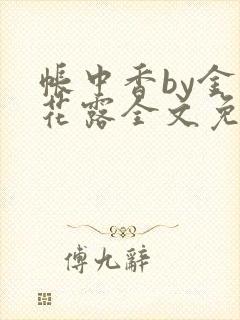 帐中香by金
花露全文免
傅九辭